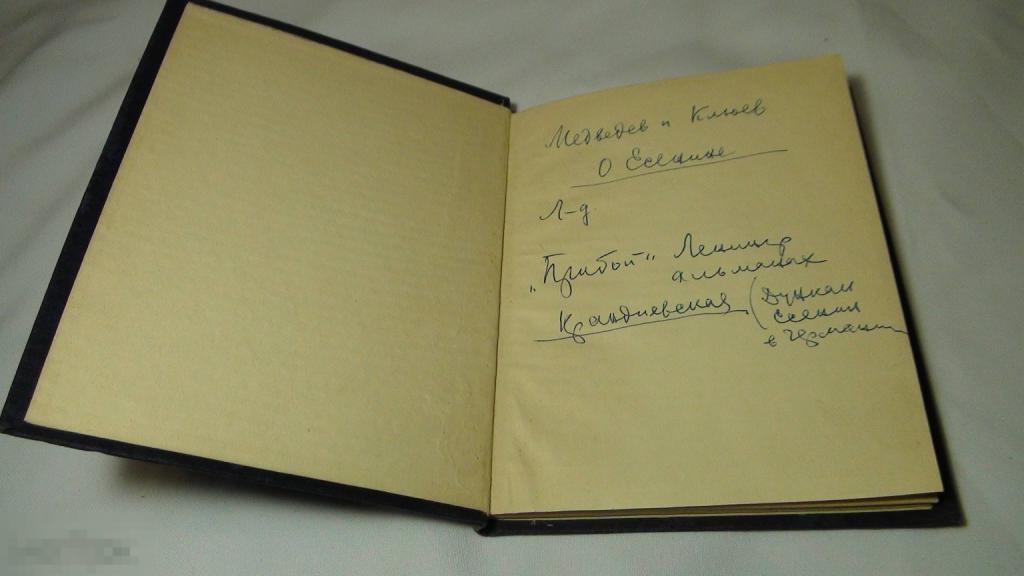 Медведев и Клюев
О Есенине
Л-д
„Прибой" Ленингр
альманах
Крандиевская (Дункан
Есенин
в Германии